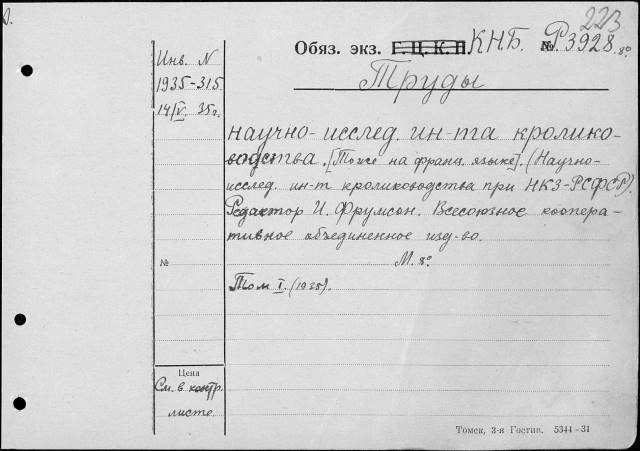 223
Обяз. экз. Г.Ц.К.П. К.Н.Б. № Р3928. 8°
Труды
Инв. N
1935-315
14/V. 35г.
научно-исслед. ин-та кролико-
водства. [Тоже на франц. языке]. (Научно-
исслед. ин-т кролиководства при НКЗ-РСФСР).
Редактор И. Фрумсон. Всесоюзное коопера-
тивное объединенное изд-во.
М. 8°
№
Том I. (1935).
Цена
См. в контр.
листе
Томск, 3-я Гостип. 5344-31